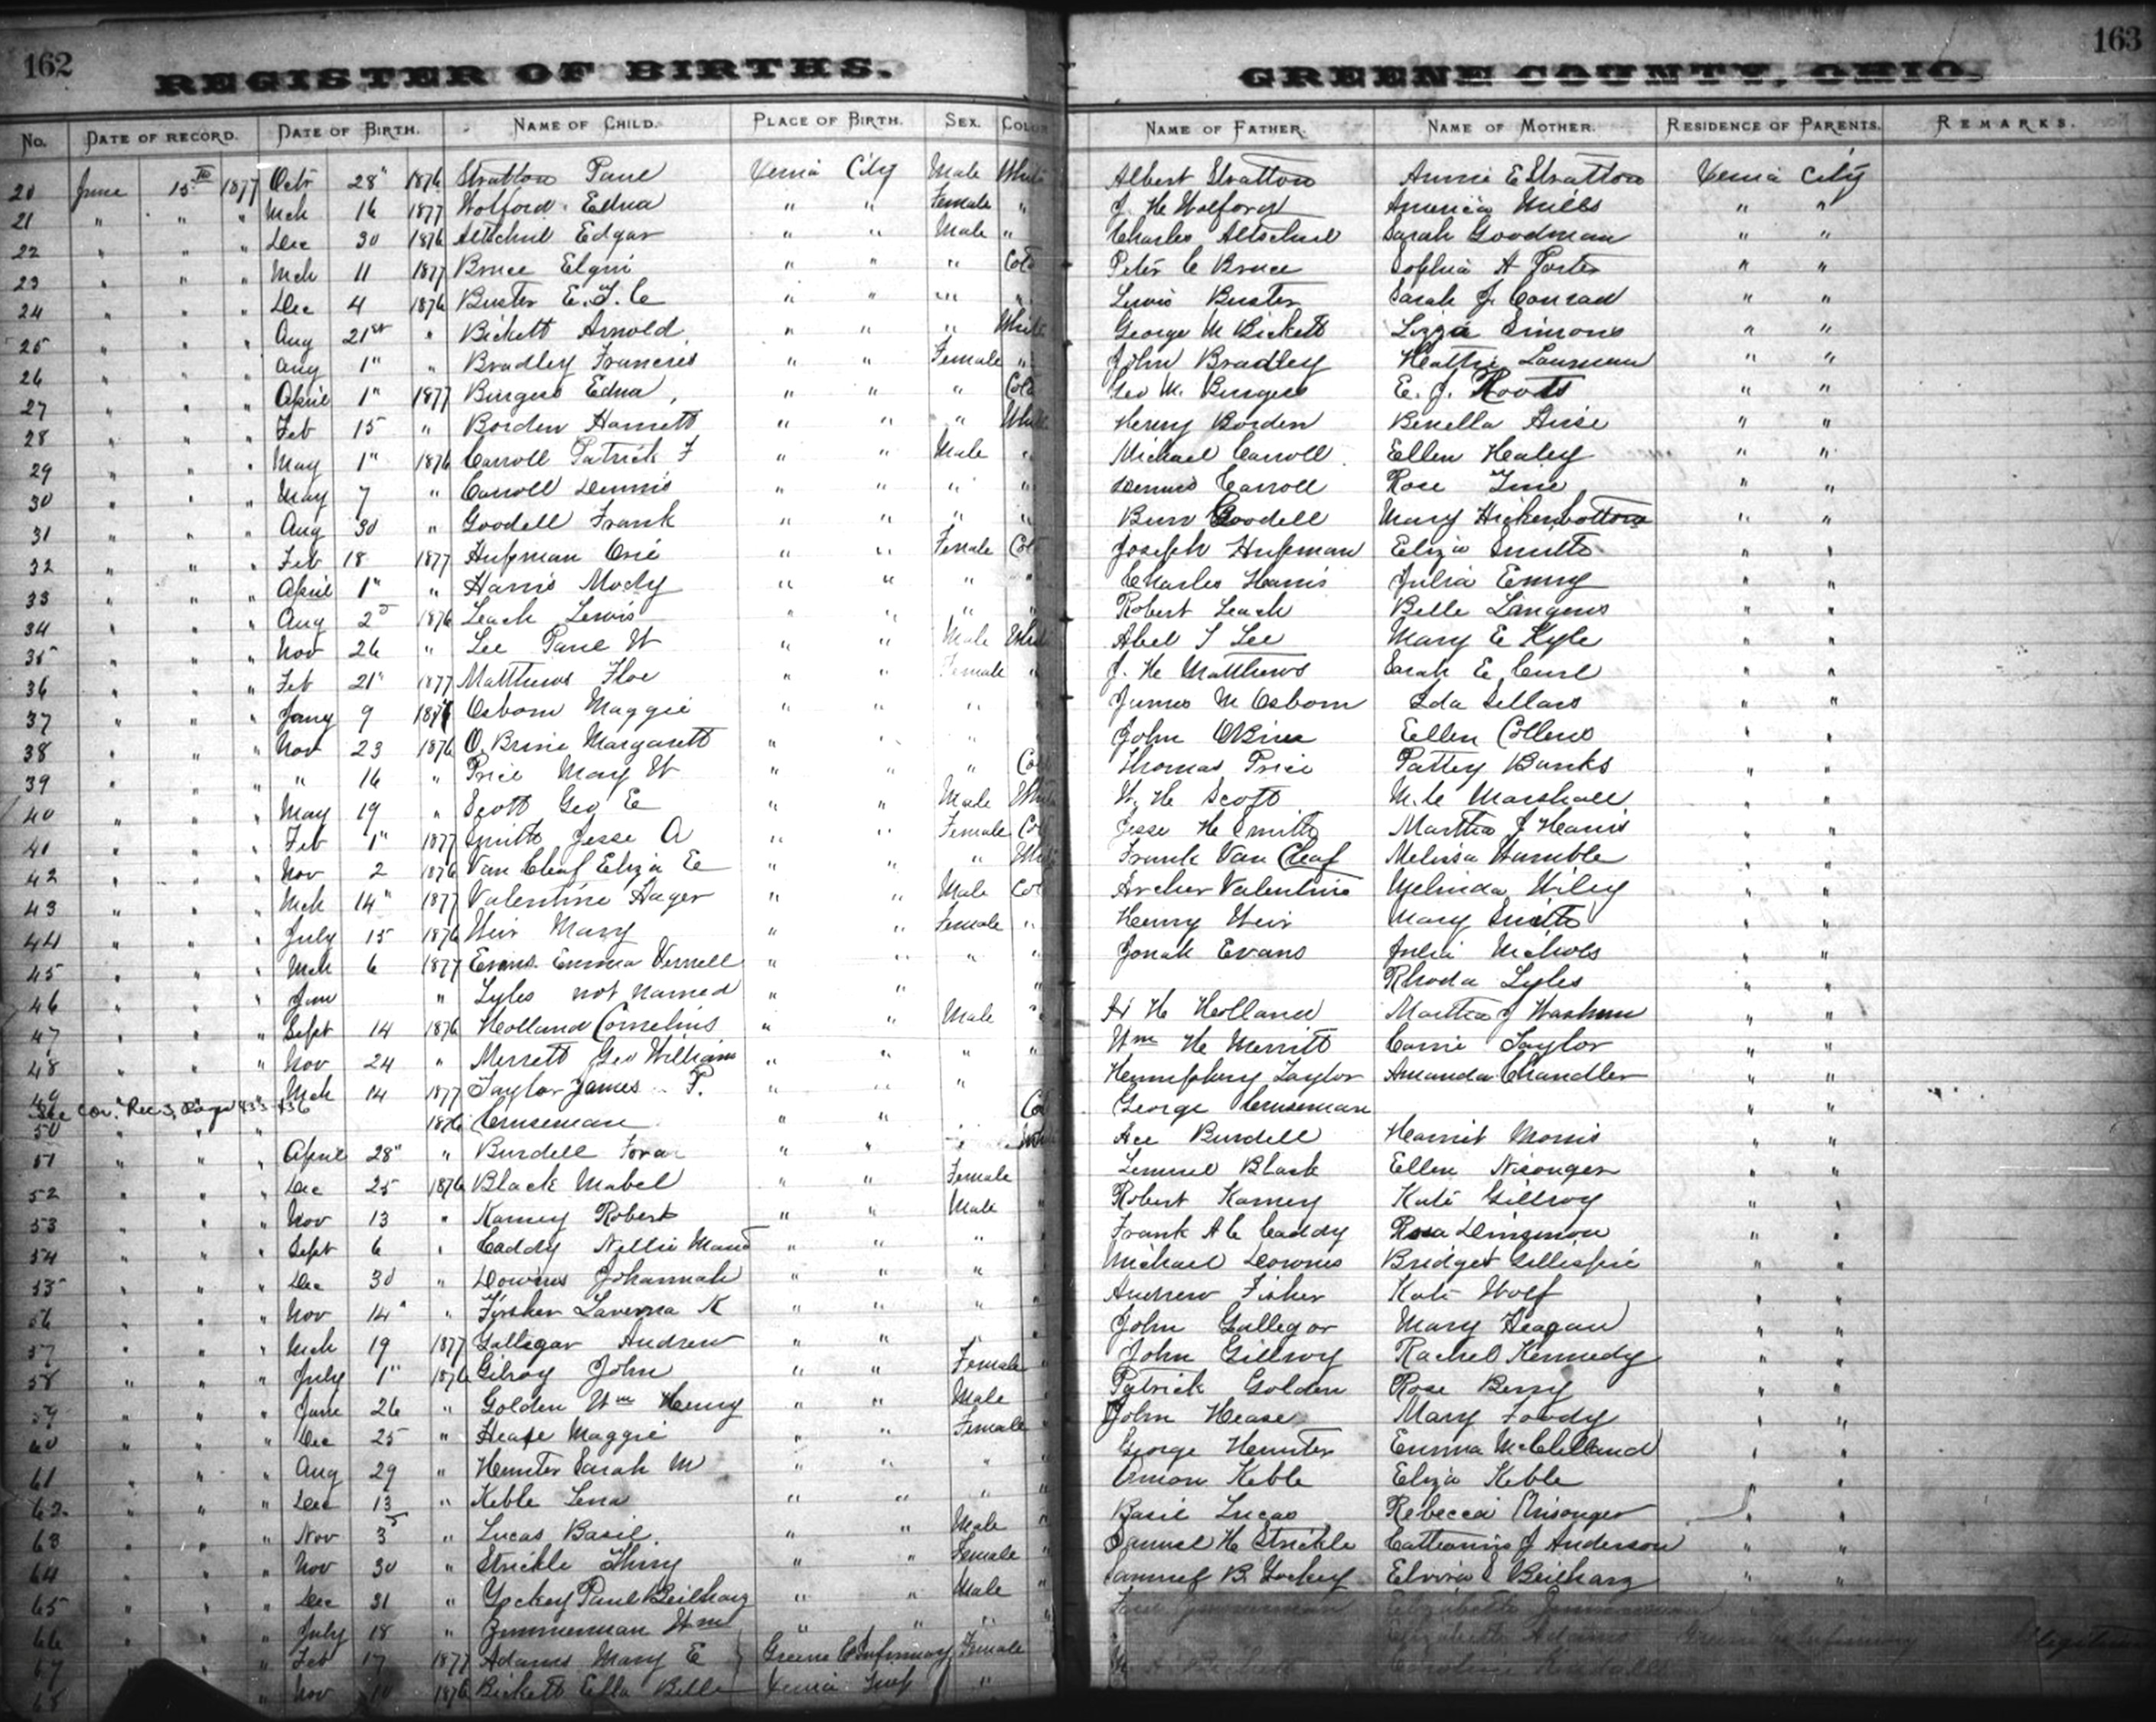 162
REGISTER OF BIRTHS.
No. DATE OF RECORD. DATE OF BIRTH. NAME OF CHILD. PLACE OF BIRTH. SEX. COLOR
20 June 15 1877 Octr 28" 1876 Stratton Paul Xenia City Male White
21 " " " Mch 16 1877 Wolford Edna " " Female "
22 " " " Dec 30 1876 Altschul Edgar " " Male "
23 " " " Mch 11 1877 Bruce " " " Cold
24 " " " Dec 4 1876 Buster " " " "
25 " " " Aug 21st " Bickett Arnold " " " White
26 " " " Aug 1" " Bradley Francis " " Female "
27 " " " April 1" 1877 Burgess Edna " " " Cold
28 " " " Feb 15 " Borden Harriett " " " White
29 " " " May 1" 1876 Carroll Patrick F " " Male "
30 " " " May 7 " Carroll Dennis " " " "
31 " " " Aug 30 " Goodell Frank " " " "
32 " " " Feb 18 1877 Hufman " " Female Cold
33 " " " April 1" " Harris " " " "
34 " " " Aug 1876 Leach Lewis " " " "
35 " " " Nov 26 " Lee Paul W " " Male White
36 " " " Feb 21" 1877 Matthews Floe " " Female "
37 " " " Jany 9 Osborn Maggie " " "
38 " " " Nov 23 1876 O.Brine Margarett " " "
39 " " " " 16 " Price May W " " " Col
40 " " " May 19 " Scott Geo E " " Male White
41 " " " Feb 1" 1877 Smith Jesse A " " Female Col
42 " " " Nov 2 1876 Van Cleaf Eliza E " " " White
43 " " " Mch 14" 1877 Valentine " " Male Col
44 " " " July 15 1876 Weir Mary " " Female "
45 " " " Mch 6 1877 Evans Emma " " " "
46 " " " " Lyles not named " " "
47 " " " Sept 14 1876 Holland Cornelius " " Male "
48 " " " Nov 24 " Merrett Geo William " " " "
49 " " " Mch 14 1877 Taylor James P. " " "
See Cor. Rec 3, Page
50 " " " 1876 Cruseman " " Col
51 " " " April 28" " Burdell " " "
52 " " " Dec 25 1876 Black Mabel " " Female
53 " " " Nov 13 " Robert " " Male
54 " " " Sept 6 " Caddy Nellie Maud " " "
55 " " " Dec 30 " Downes Johannah " " "
56 " " " Nov 14" " Laverna K " " "
57 " " " Mch 19 1877 Galligar Andrew " " "
58 " " " July 1" 1876 Gilroy John " " Female
59 " " " June 26 " Golden Wm Henry " " Male
60 " " " Dec 25 " Maggie " " Female
61 " " " Aug 29 " Hunter Sarah M " " "
62 " " " Dec 13 " Keble Lena " " "
63 " " " Nov " Lucas Basil " " Male
64 " " " Nov 30 " Strickle " " Female
65 " " " Dec 31 " Yockey Paul Beilharz " " Male
66 " July 18 " Zimmerman Wm " " "
67 " Feb 17 1877 Adams Mary E Greene Co Infirmary Female
68 " Nov 10 1876 Bickett Effa Belle Xenia Twp "
163
GREENE COUNTY, OHIO.
NAME OF FATHER. NAME OF MOTHER. RESIDENCE OF PARENTS. REMARKS.
Albert Stratton Annie E Stratton Xenia City
J. H Wolford America Mills " "
Charles Altschul Sarah Goodman " "
Peter C Bruce Sophia A Porter " "
Lewis Buster Sarah J. Conrad " "
George M Bickett Lizza Simons " "
John Bradley Hattie " "
Geo M. Burgess E. J. Roots " "
Henry Borden " "
Michael Carroll Ellen Healey " "
Dennis Carroll Rose " "
Burr Goodell Mary Hickenbottom " "
Joseph Hufman Eliza Smith " "
Charles Harris Julia " "
Robert Leach Belle " "
Abel Lee Mary E Kyle " "
J. H Matthews Sarah E. Curl " "
James M Osborn Ida Sellars " "
John OBrien Ellen Collens " "
Thomas Price Pattey Banks " "
W. H Scott Marshall " "
Jesse H Smith Martha J Harris " "
Frank Van Cleaf Melissa Humble " "
Archer Valentine Melinda Wiley " "
Henry Weir Mary Smith " "
Jonah Evans Julia Nichols " "
Rhoda Lyles " "
H Holland Martha J " "
Wm H Merritt Carrie Taylor " "
Humphrey Taylor Amanda Chandler " "
George Cruseman " "
Ace Burdell Harriet Morris " "
Lemuel Black Ellen Nisonger " "
Robert Kate Gillroy " "
Frank A C Caddy Rosa Dinsmore " "
Michael Downes Bridget Gillispie " "
Andrew Fisher Kate Wolf " "
John Gallegor Mary Heagan " "
John Gillroy Rachel Kennedy " "
Patrick Golden Rose Berry " "
John Hease Mary Foody " "
George Hunter Emma McClelland " "
Keble Eliza Keble " "
Basil Lucas Rebecca Nisonger " "
Samuel H Strickle Catharine J Anderson " "
Samuel B. Yockey Elvira S Beilharz " "
Zimmerman Elizabeth Zimmerman
Elizabeth Adams Greene Co Infirmary
Caroline